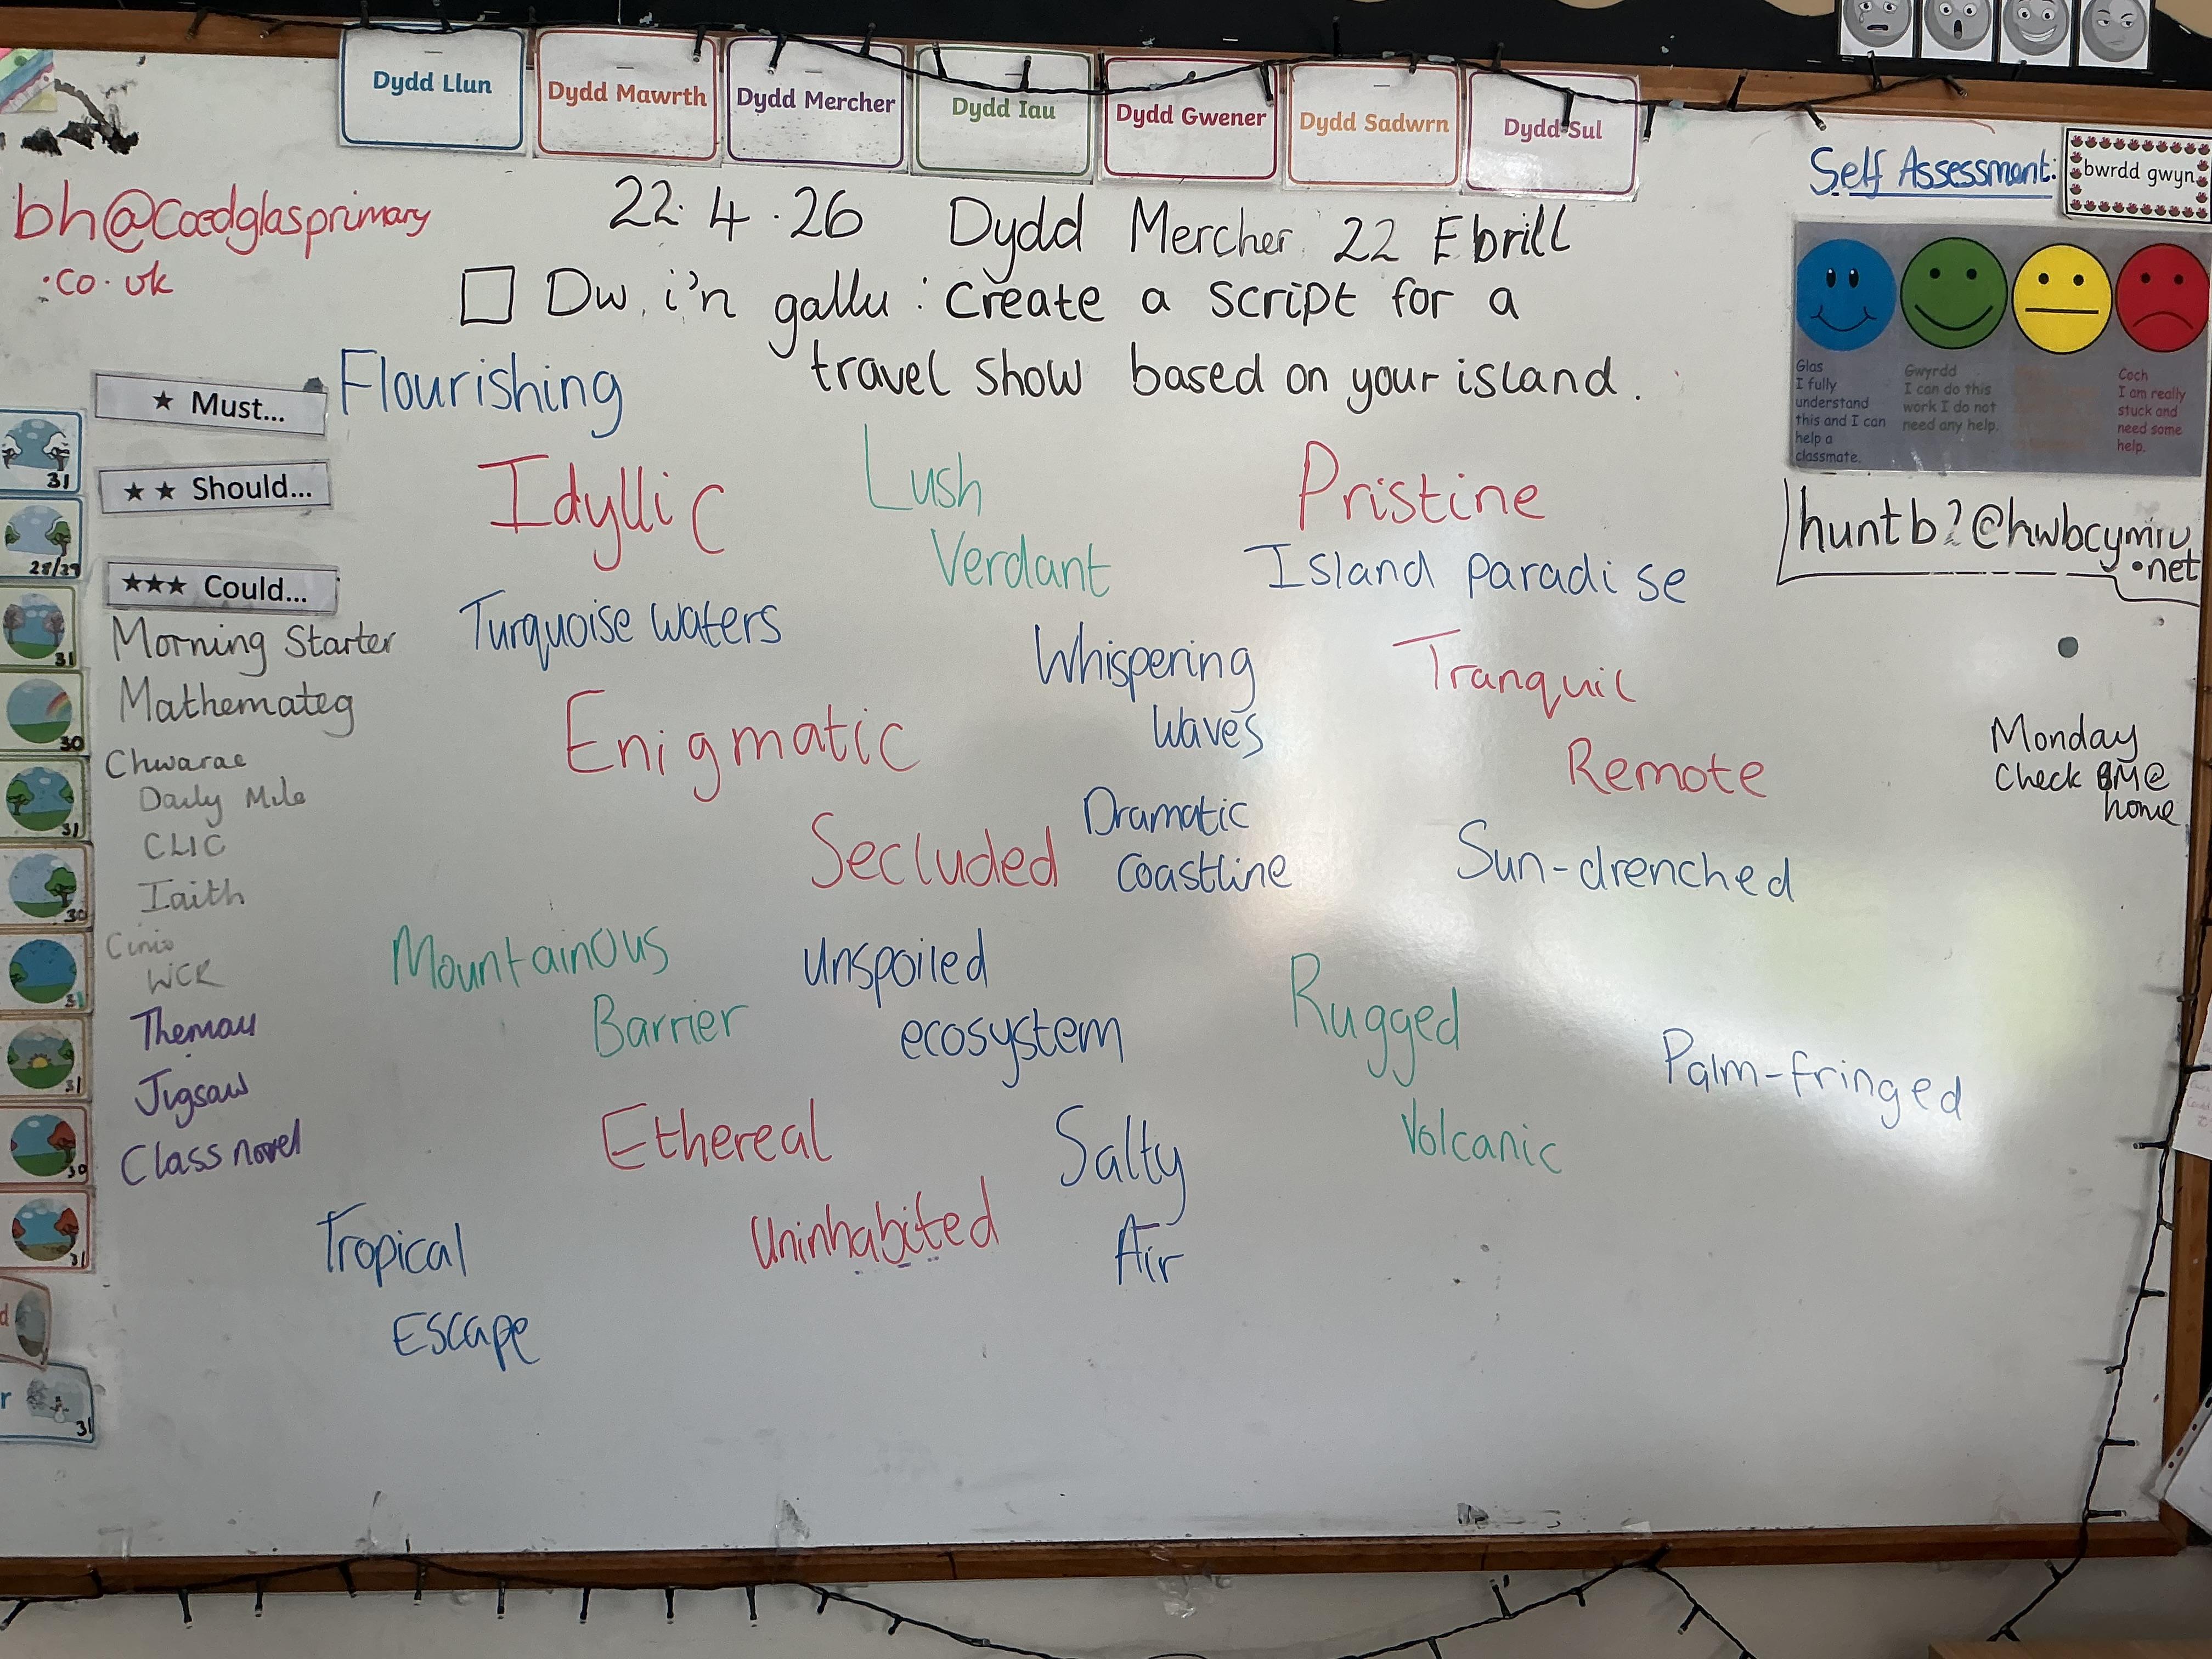 Dydd Llun
Dydd Mawrth
Dydd Mercher
Dydd Iau
Dydd Gwener
Dydd Sadwrn
Dydd Sul
Self Assessment:
bwrdd gwyn
bh@Coedglasprimary
.co.uk
22.4.26 Dydd Mercher 22 Ebrill
Dw i'n gallu: Create a script for a
travel show based on your island.
Glas
I fully
understand
this and I can
help a
classmate.
Gwyrdd
I can do this
work I do not
need any help.
Coch
I am really
stuck and
need some
help.
huntb2@hwbcymru
.net
Monday
Check BM@
home
★ Must...
★★ Should...
★★★ Could...
Morning Starter
Mathemateg
Chwarae
Daily Mile
CLIC
Iaith
Cinio
WCR
Themau
Jigsaw
Class novel
31
28/29
31
30
31
30
31
31
30
31
d
r
31
Flourishing
Idyllic
Lush
Pristine
Verdant
Island paradise
Turquoise waters
Whispering
Waves
Tranquil
Enigmatic
Remote
Secluded
Dramatic
Coastline
Sun-drenched
Mountainous
Barrier
Unspoiled
ecosystem
Rugged
Palm-fringed
Ethereal
Salty
Air
Volcanic
Uninhabited
Tropical
Escape